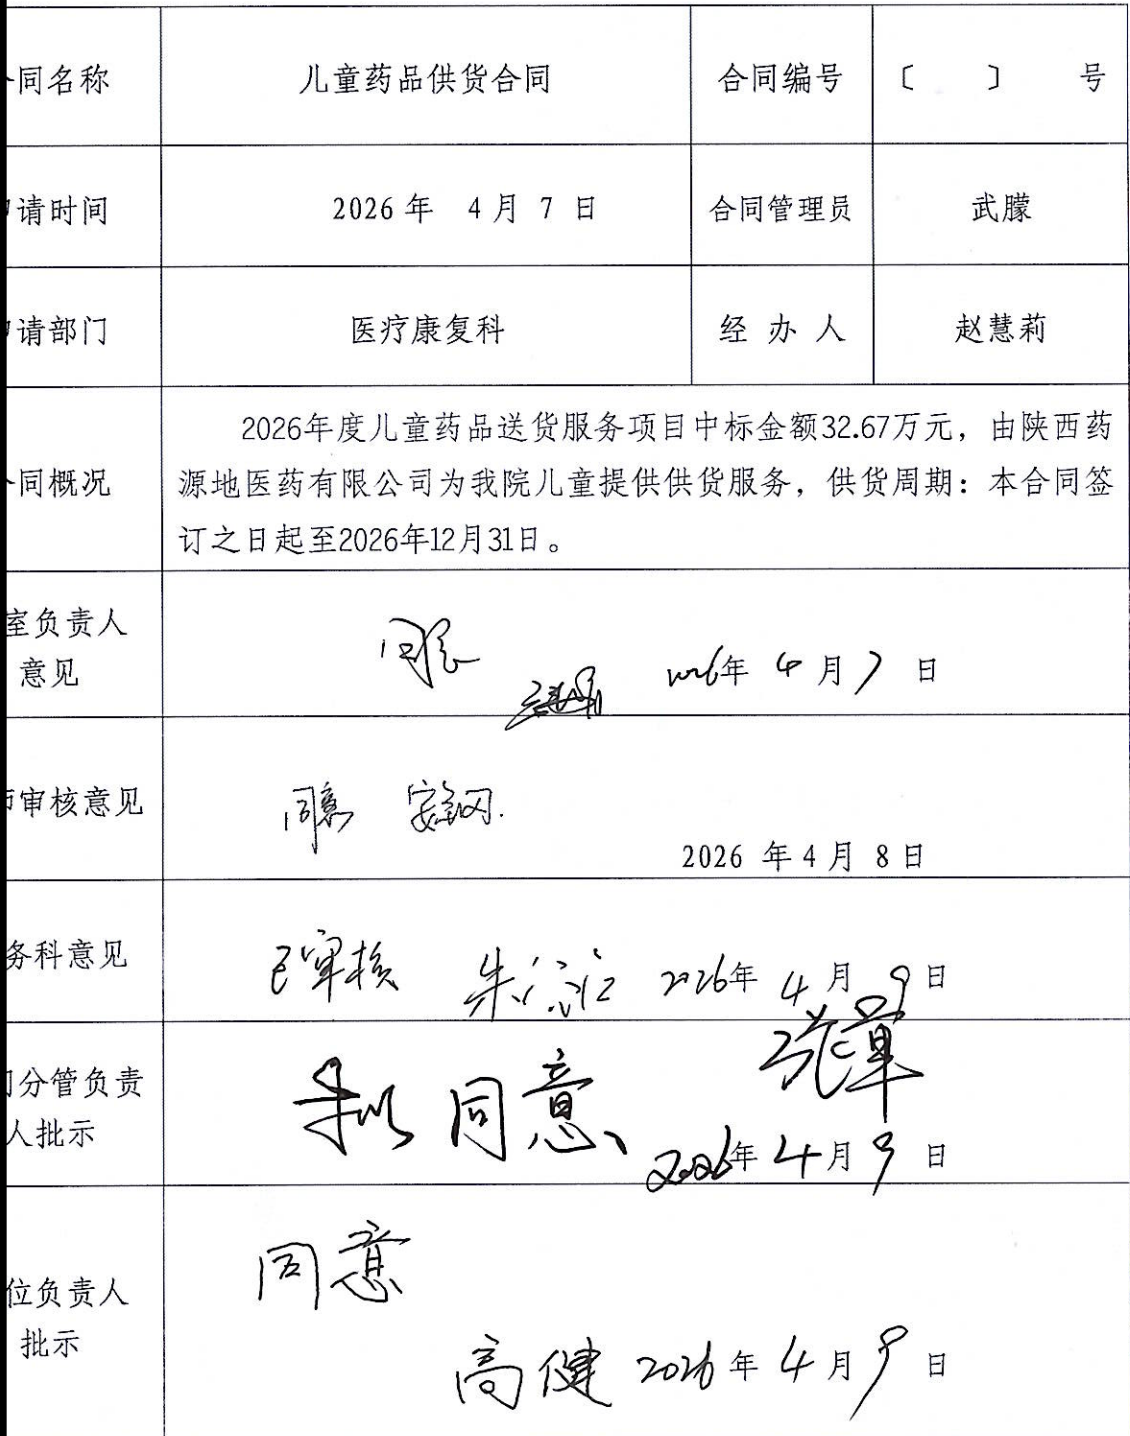 同名称 儿童药品供货合同 合同编号 〔 〕 号
请时间 2026 年 4 月 7 日 合同管理员 武朦
请部门 医疗康复科 经 办 人 赵慧莉
2026年度儿童药品送货服务项目中标金额32.67万元，由陕西药
同概况 源地医药有限公司为我院儿童提供供货服务，供货周期：本合同签
订之日起至2026年12月31日。
室负责人
意见 同意 2026年 4 月 7 日
审核意见 同意
2026 年 4 月 8 日
务科意见 已审核 2026年 4 月 9 日
分管负责
人批示 拟同意、 张革 2026年 4 月 9 日
同意
位负责人
批示
高健 2026 年 4 月 9 日